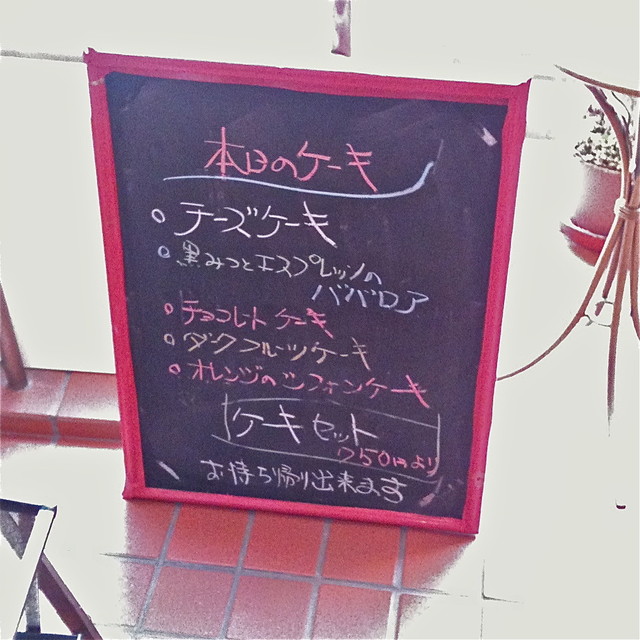 本日のケーキ
チーズケーキ
黒みつとエスプレッソの
ババロア
チョコレートケーキ
ダークフルーツケーキ
オレンジのシフォンケーキ
ケーキセット
750円より
お持ち帰り出来ます